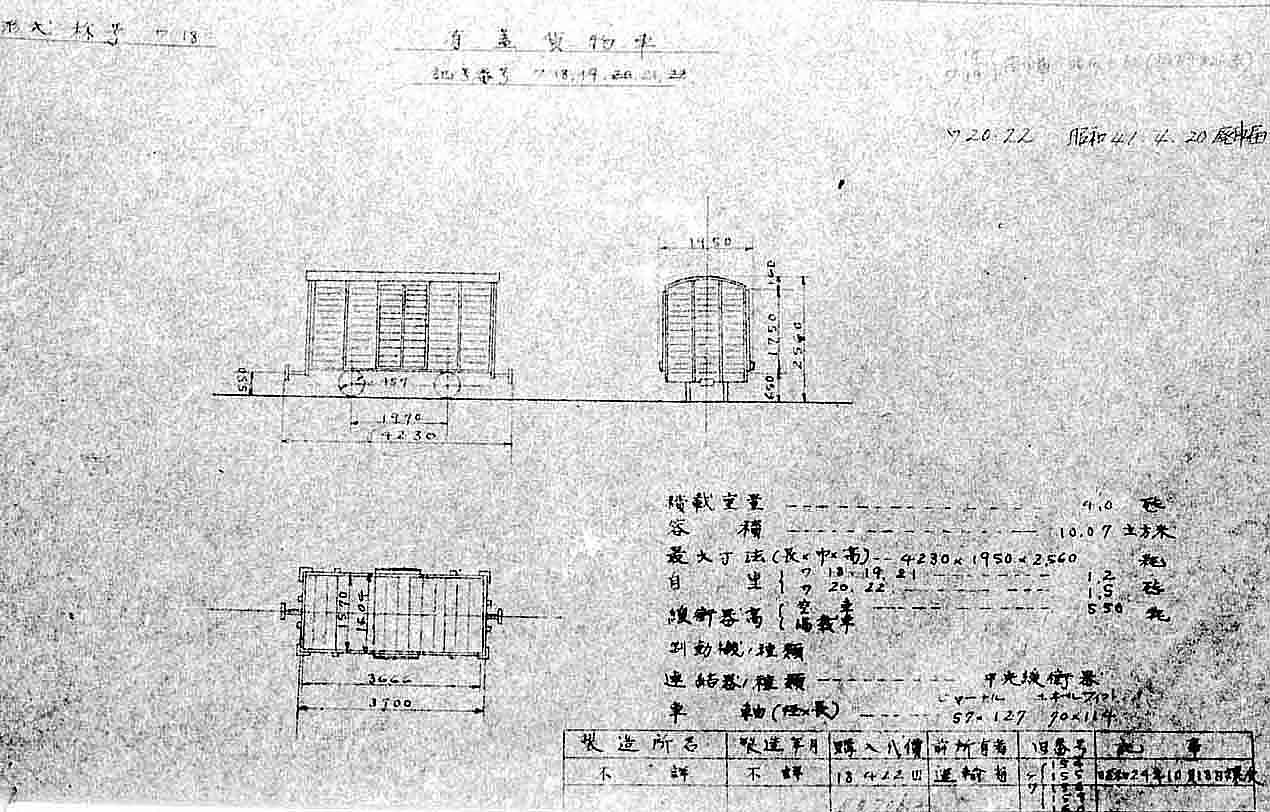 形式称号 ワ18
有蓋貨物車
記号番号 ワ18,19,20,21,22
ワ20.22 昭和41.4.20廃車届
1950
150
1750
2560
650
550
457
1970
4230
1570
3700
積載重量 4.0 瓲
容積 10.07 立方米
最大寸法(長×巾×高) 4230×1950×2,560 粍
自重 ワ18.19.21 1.2
ワ20.22 1.5 瓲
緩衝器高 空車 550 粍
満載車
制動機ノ種類
連結器ノ種類 中央緩衝器
ジャーナル ホイルフィット
車軸(径×長) 57×127 70×114
製造所名 製造年月 購入代價 前所有者 旧番号 記事
不詳 不詳 18422円 運輸省 ワ 155 昭和24年10月18日譲受